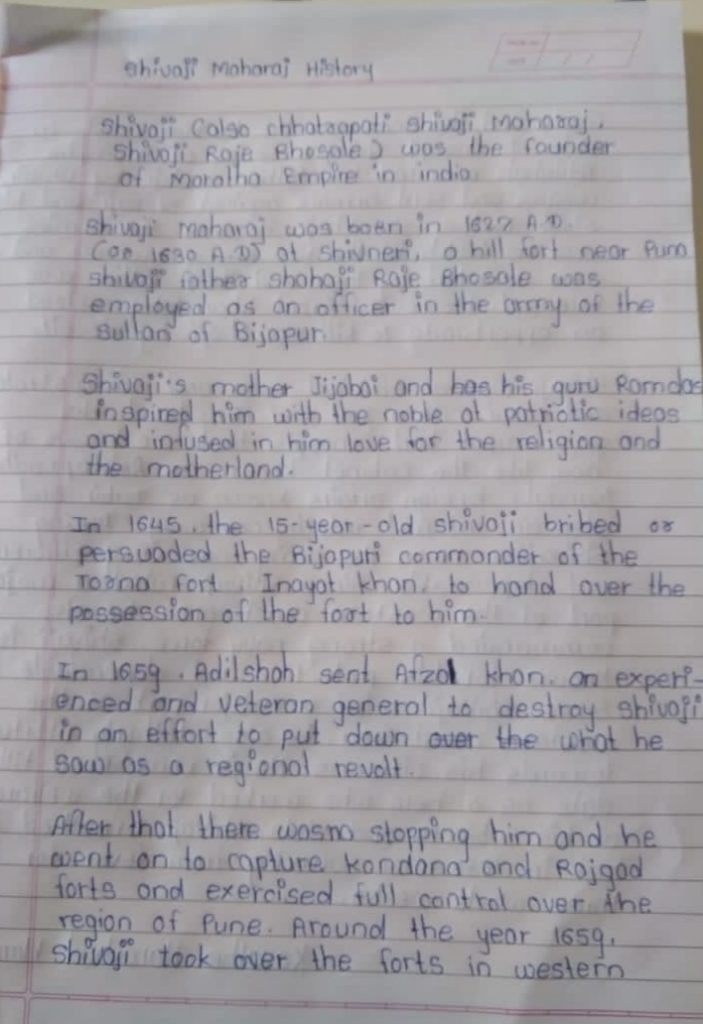 Shivaji Maharaj History
Shivaji (also chhatrapati shivaji maharaj,
Shivaji Raje Bhosale) was the founder
of Maratha Empire in india.
Shivaji maharaj was born in 1627 A.D.
(or 1630 A.D) at shivneri, a hill fort near Puna
shivaji father shahaji Raje Bhosale was
employed as an officer in the army of the
sultan of Bijapur.
Shivaji's mother Jijabai and has his guru Ramdas
inspired him with the noble at patriotic ideas
and infused in him love for the religion and
the motherland.
In 1645, the 15-year-old shivaji bribed or
persuaded the Bijapuri commander of the
Torna fort, Inayat khan, to hand over the
possession of the fort to him.
In 1659, Adilshah sent Afzal khan, an experi-
enced and veteran general to destroy shivaji
in an effort to put down over the what he
saw as a regional revolt.
After that there wasno stopping him and he
went on to capture kondana and Rajgad
forts and exercised full control over the
region of Pune. Around the year 1659,
Shivaji took over the forts in western